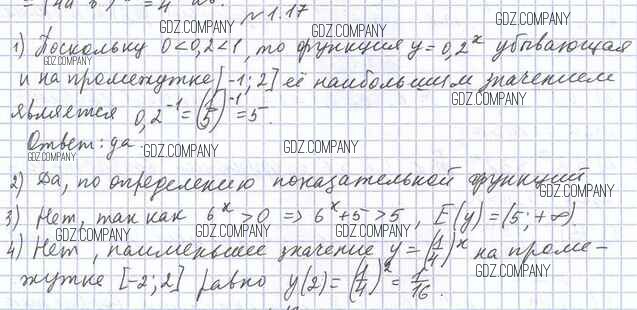 = (4a b) = 4 ab.
№1.17
1) Поскольку 0<0,2<1, то функция y=0,2^x убывающая
и на промежутке [-1; 2] её наибольшим значением
является 0,2^-1 = (1/5)^-1 = 5.
Ответ: да.
2) Да, по определению показательной функций
3) Нет, так как 6^x>0 => 6^x+5>5, E(y)=(5;+∞).
4) Нет, наименьшее значение y=(1/4)^x на проме-
жутке [-2; 2] равно y(2)=(1/4)^2=1/16.
GDZ.COMPANY
GDZ.COMPANY
GDZ.COMPANY
GDZ.COMPANY
GDZ.COMPANY
GDZ.COMPANY
GDZ.COMPANY
GDZ.COMPANY
GDZ.COMPANY
GDZ.COMPANY
GDZ.COMPANY
GDZ.COMPANY
GDZ.COMPANY
GDZ.COMPANY